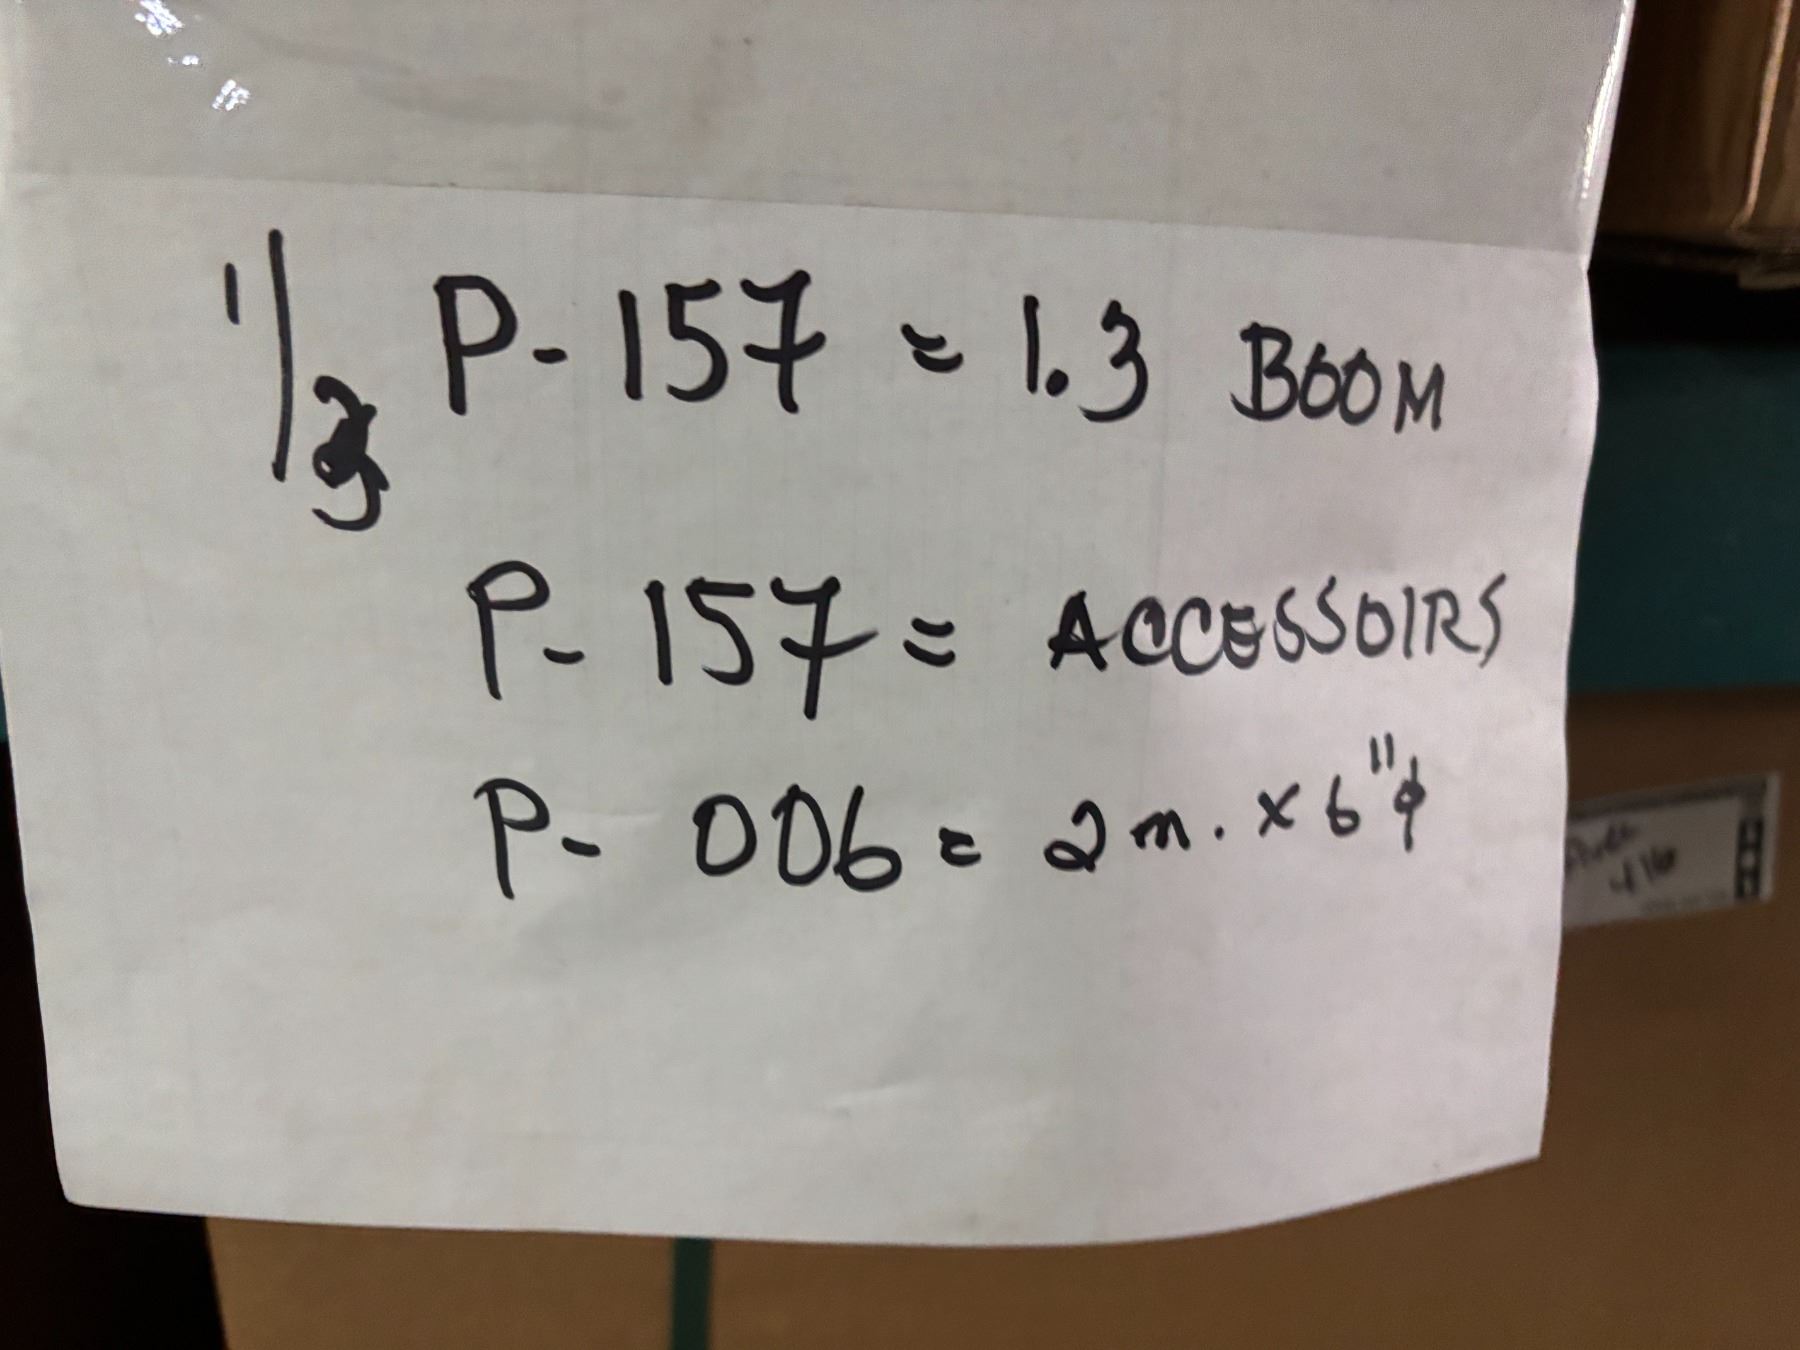 1/3 P-157 = 1.3 BOOM
P-157 = ACCESSOIRS
P-006 = 2m. x 6"φ